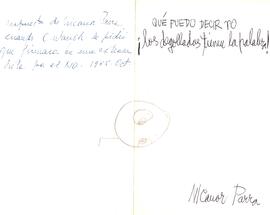 respuesta de Nicanor Parra
cuando C. Warnk le pidió
que firmara
por el NO. 1988. Oct
QUÉ PUEDO DECIR YO
¡los degollados tienen la palabra!
Nicanor Parra